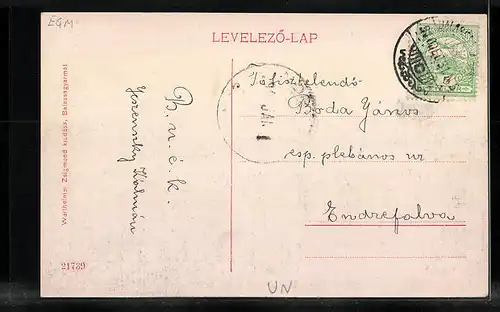 EGM
LEVELEZŐ-LAP
Wertheimer Zsigmond kiadása, Balassagyarmat
B. u. é. k.
Jeszenszky Kálmán
Főtisztelendő
Boda János
esp. plébános ur
Endrefalva
21739
UN